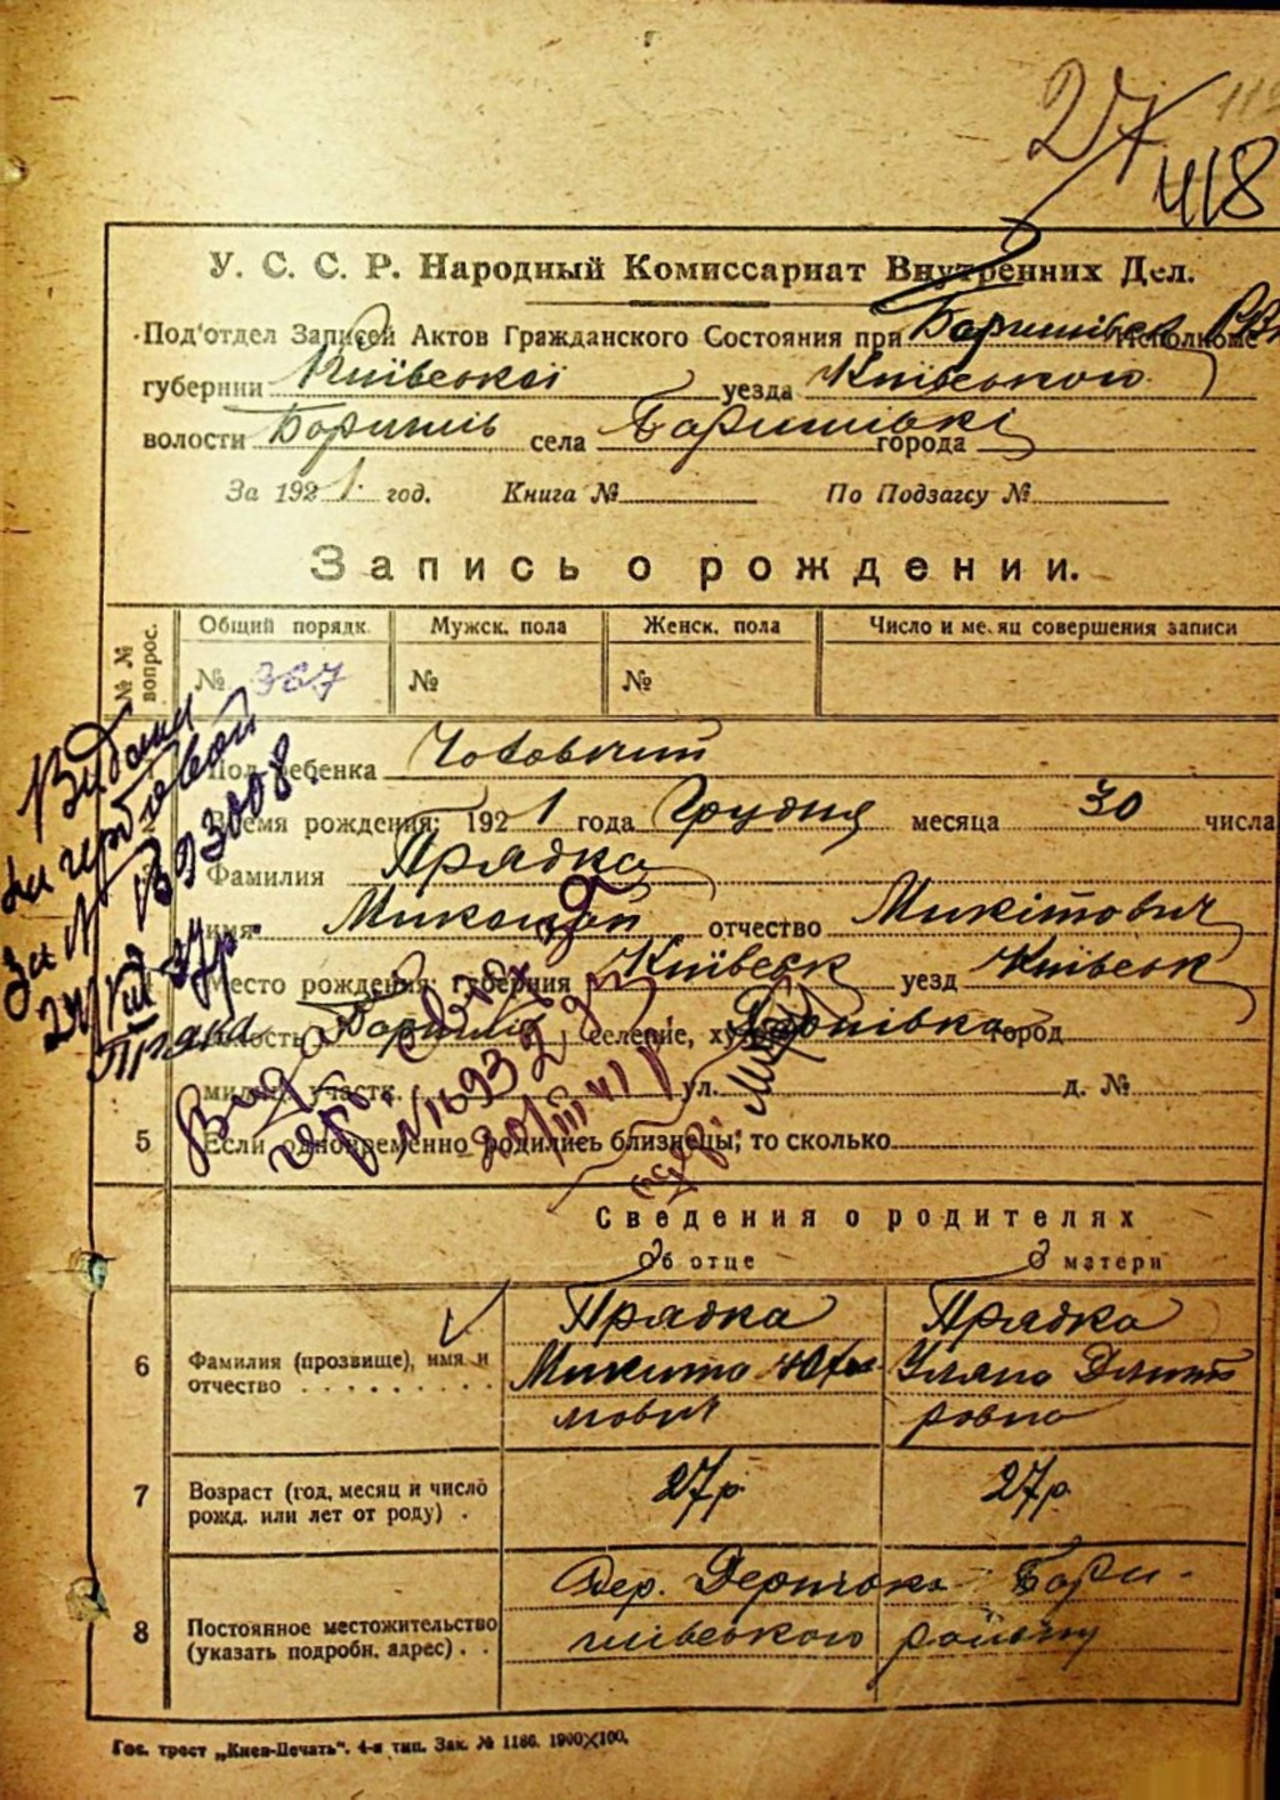 27
418
У. С. С. Р. Народный Комиссариат Внутренних Дел.
Под'отдел Записей Актов Гражданского Состояния при Баришівск Исполкоме
губернии Київської уезда Київського
волости Баришів села Баришівкі города
За 1921 год. Книга № По Подзагсу №
Запись о рождении.
№№ вопрос.
Общий порядк. Мужск. пола Женск. пола Число и месяц совершения записи
№ 367 № №
Пол ребенка Чоловычий
Время рождения: 1921 года Грудня месяца 30 числа
Фамилия Прядка
имя Миколай отчество Микітович
Место рождения: губерния Київськ уезд Київськ
волость Баришів селение, хутор Дернівка город
милиц. участк. ул. д. №
5 Если одновременно родились близнецы, то сколько
Видани
на гербовой
за № 093008.
24/VIII 37р
№ 1693292
20/III 41 р
Сведения о родителях
Об отце О матери
Прядка Прядка
6 Фамилия (прозвище), имя и Микита Уляна Дмит
отчество мович ровна
7 Возраст (год, месяц и число 27р 27р.
рожд. или лет от роду)
Дер. Дернівка Бари-
8 Постоянное местожительство шівського району
(указать подробн. адрес)
Гос. трест „Киев-Печать“. 4-я тип. Зак. № 1186. 1900X100.